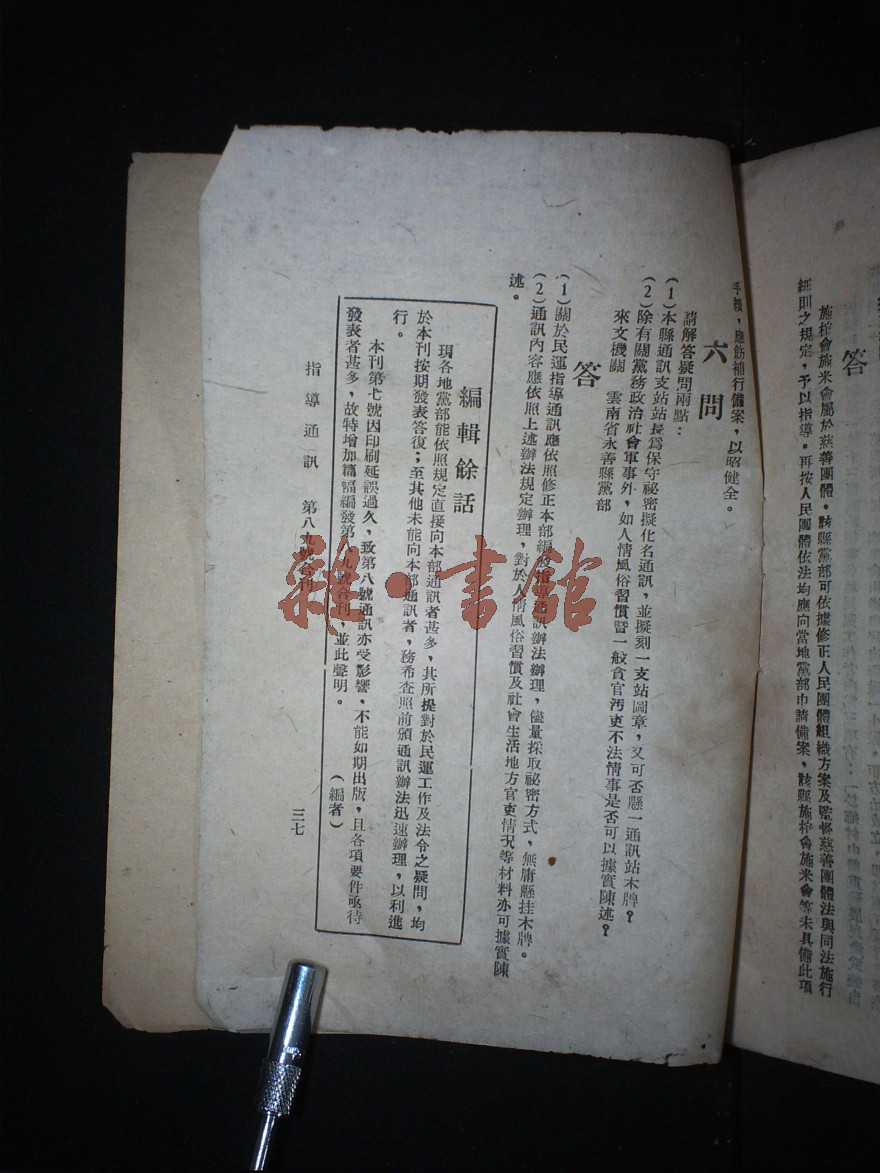 答
施棺會施米會屬於慈善團體，該縣黨部可依據修正人民團體組織方案及監督慈善團體法與同法施行
細則之規定，予以指導。再按人民團體依法均應向當地黨部申請備案，該縣施棺會施米會等未具備此項
手續，應飭補行備案，以昭健全。
六 問
請解答疑問兩點：
(1)本縣通訊支站站長爲保守祕密擬化名通訊，並擬刻一支站圖章，又可否懸一通訊站木牌？
(2)除有關黨務政治社會軍事外，如人情風俗習慣暨一般貪官汚吏不法情事是否可以據實陳述？
來文機關 雲南省永善縣黨部
答
(1)關於民運指導通訊應依照修正本部編發指導通訊辦法辦理，儘量採取祕密方式，無庸懸挂木牌。
(2)通訊內容應依照上述辦法規定辦理，對於人情風俗習慣及社會生活地方官吏情況等材料亦可據實陳
述。
編輯餘話
現各地黨部能依照規定直接向本部通訊者甚多，其所提對於民運工作及法令之疑問，均
於本刊按期發表答復；至其他未能向本部通訊者，務希查照前頒通訊辦法迅速辦理，以利進
行。
本刊第七號因印刷延誤過久，致第八號通訊亦受影響，不能如期出版，且各項要件亟待
發表者甚多，故特增加篇幅編發第八九號合刊，並此聲明。
(編者)
指導通訊 第八九號合刊
三七
雜·書館